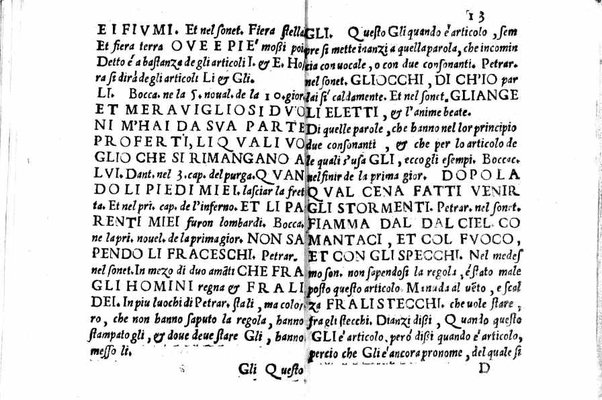 EI FIVMI. Et nel sonet. Fiera stella
Et fiera terra OVE E PIE' mosti poi
Detto è a bastanza de gli articoli I. & E. Ho
ra si dirà degli articoli Li & Gli.
LI. Bocca. ne la 5. noual. de la 10. gior.
ET MERAVIGLIOSI DVO
NI M'HAI DA SVA PARTE
PROFERTI, LI QVALI VO
GLIO CHE SI RIMANGANO A
LVI. Dant. nel 3. cap. del purga. QVAN
DO LI PIEDI MIEI. lasciar la fret
ta. Et nel pri. cap. de l'inferno. ET LI PA
RENTI MIEI furon lombardi. Bocca.
ne la pri. nouel. de la prima gior. NON SA
PENDO LI FRACESCHI. Petrar.
nel sonet. In mezo di duo amāti CHE FRA
GLI HOMINI regna & FRA LI
DEI. In piu luochi di Petrar. stali, ma coloro
ro, che non hanno saputo la regola, hanno
stampato gli, & doue deue stare Gli, hanno
messo li.
Gli Questo
13
GLI. Questo Gli quando è articolo, sem
pre si mette inanzi a quella parola, che incomin
cia con uocale, o con due consonanti. Petrar.
nel sonet. GLIOCCHI, DI CH'IO par
lai si' caldamente. Et nel sonet. GLIANGE
LI ELETTI, & l'anime beate.
Di quelle parole, che hanno nel lor principio
due consonanti, & che per lo articolo de
le quali s'usa GLI, eccogli esempi. Boccac.
nel finir de la prima gior. DOPO LA
QVAL CENA FATTI VENIR
GLI STORMENTI. Petrar. nel sonet.
FIAMMA DAL DAL CIEL. CO
MANTACI, ET COL FVOCO,
ET CON GLI SPECCHI. Nel medes
mo son. non sapendosi la regola, è stato male
posto questo articolo. Minuda al uēto, e scal
za FRA LI STECCHI. che uole stare,
fra gli stecchi. Dianzi dissi, Quando questo
GLI è articolo, però dissi quando è articolo,
percio che Gli è ancora pronome, del quale si
D